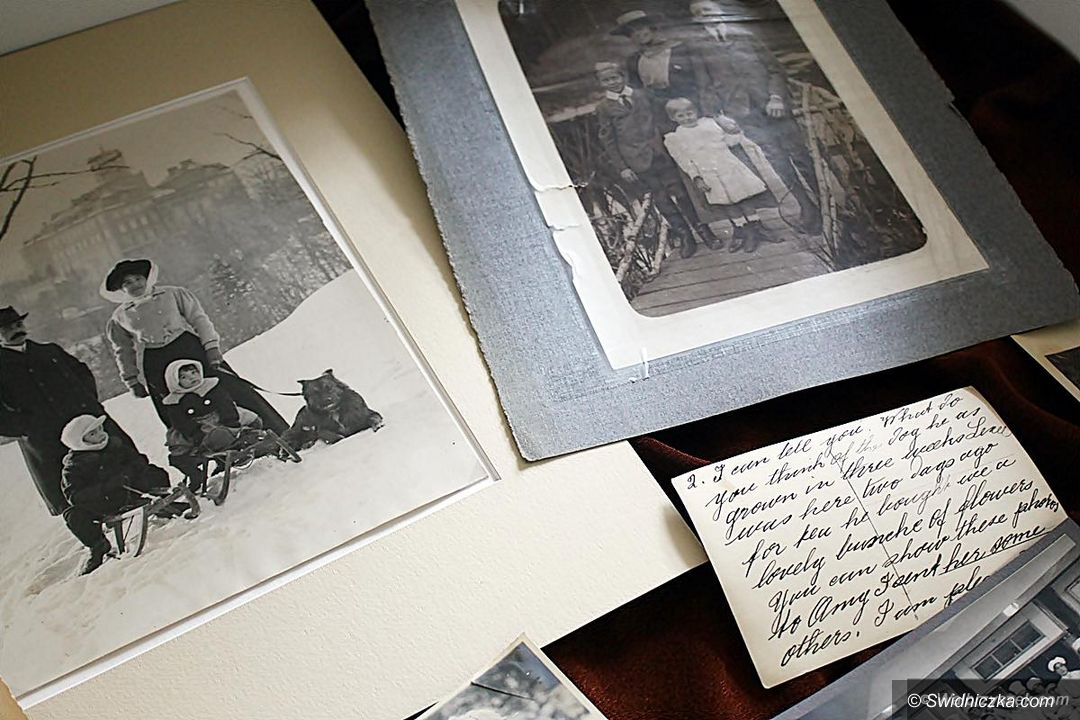 2. I can tell you. What do
you think of the Dog he as
grown in three weeks
was here two days ago
for tea he bought me a
lovely bunche of flowers
You can show these photos
to Amy I sent her some
others. I am
© Swidniczka.com